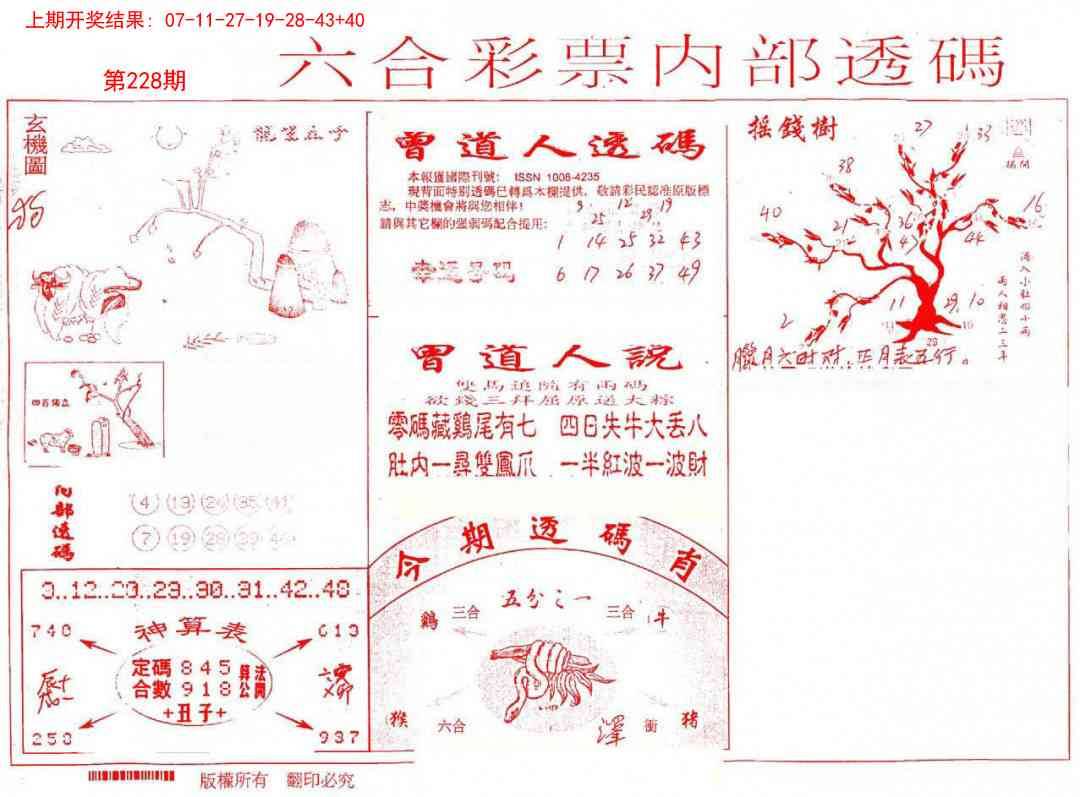 上期开奖结果: 07-11-27-19-28-43+40
第228期
六合彩票内部透碼
玄機圖
曾道人透碼
本報獲國際刊號: ISSN 1008-4235
現背面特別透碼已轉爲本欄提供，敬請彩民認准原版標
志，中獎機會將與您相伴!
請與其它欄的强弱碼配合提用:
9 12 19
25 29
1 14 25 32 43
幸運号码
6 17 26 37 49
曾道人説
雙馬追隨有兩碼
欲錢三拜屈原送大粽
零碼藏鷄尾有七 四日失牛大丢八
肚内一尋雙鳳爪 一半紅波一波財
摇錢樹
27
33
38
揭開
40
21
36
43
44
16
2
11
29
10
臘月六时对，正月表五行。
四百獨立
内部透碼
4 13 24 35 41
7 19 28 39
3..12..20..23..30..31..42..48
神算表
740
613
定碼 845
合數 918
算法公開
+丑子+
250
937
今期透碼肖
五分之一
鷄 三合
三合 牛
猴 六合
澤
衝 猪
版權所有 翻印必究